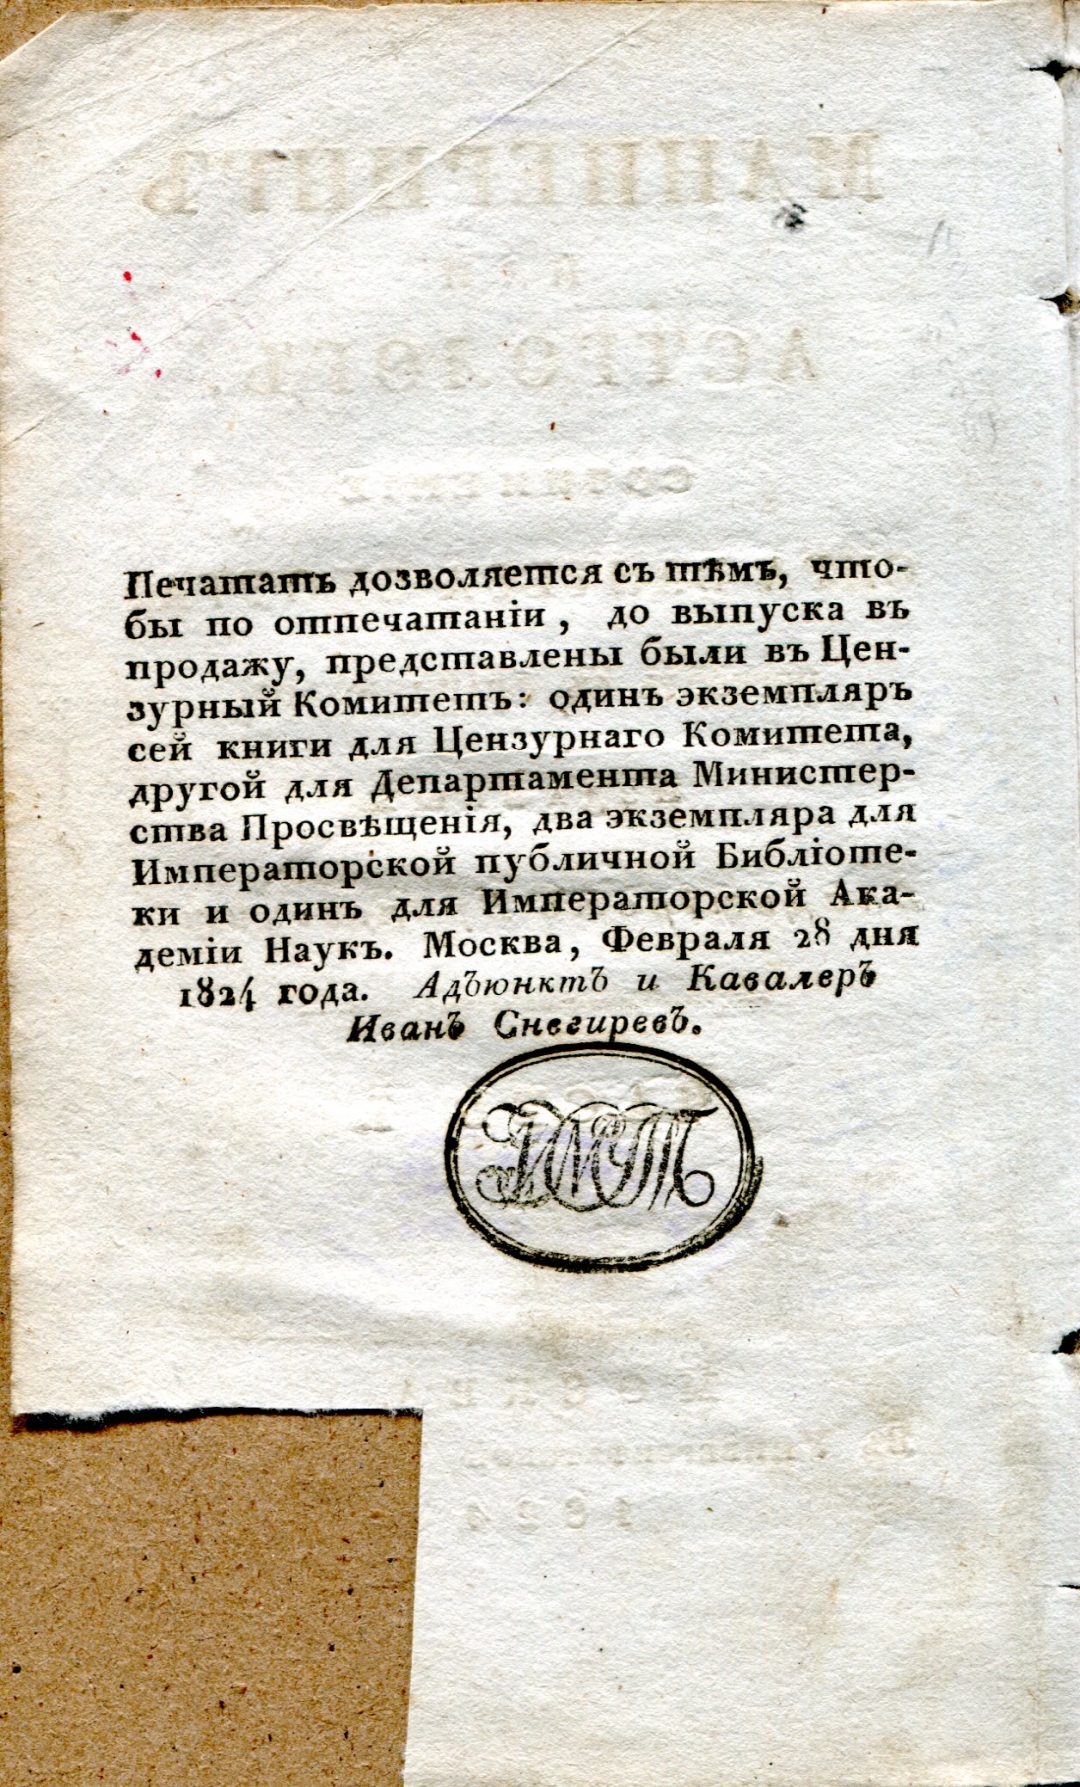 Печатать дозволяется съ тѣмъ, что-
бы по отпечатаніи, до выпуска въ
продажу, представлены были въ Цен-
зурный Комитетъ: одинъ экземпляръ
сей книги для Цензурнаго Комитета,
другой для Департамента Министер-
ства Просвѣщенія, два экземпляра для
Императорской публичной Библіоте-
ки и одинъ для Императорской Ака-
деміи Наукъ. Москва, Февраля 28 дня
1824 года. Адъюнктъ и Кавалеръ
Иванъ Снегиревъ.